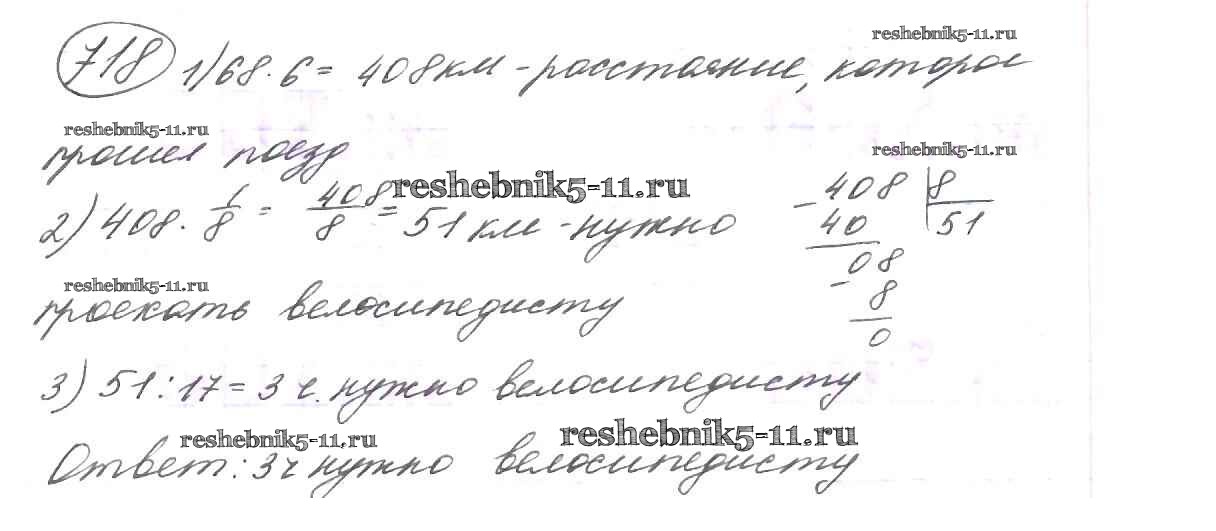 reshebnik5-11.ru
718 1) 68 · 6 = 408 км - расстояние, которое
reshebnik5-11.ru
reshebnik5-11.ru
прошел поезд
reshebnik5-11.ru
2) 408 · 1/8 = 408/8 = 51 км - нужно
- 408 | 8
40 | 51
08
- 8
0
reshebnik5-11.ru
проехать велосипедисту
3) 51 : 17 = 3 ч. нужно велосипедисту
reshebnik5-11.ru
reshebnik5-11.ru
Ответ: 3 ч нужно велосипедисту